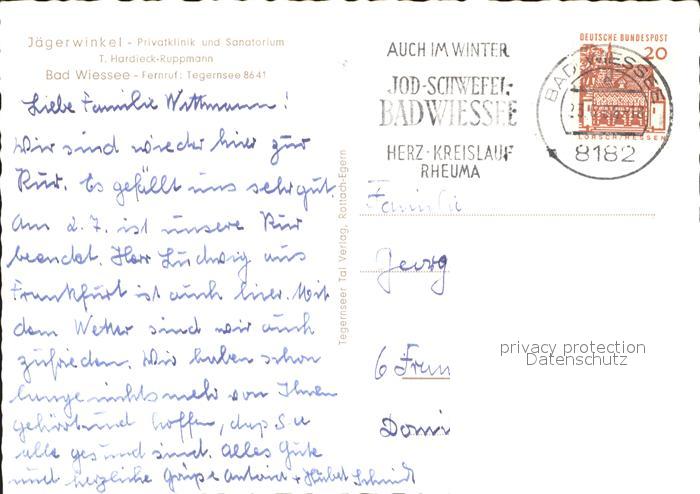 Jägerwinkel - Privatklinik und Sanatorium
T. Hardieck-Ruppmann
Bad Wiessee - Fernruf: Tegernsee 8641
Liebe Familie Wittmann!
Wir sind wieder hier zur
Kur. Es gefällt uns sehr gut.
Am 2.7. ist unsere Kur
beendet. Herr Ludwig aus
Frankfurt ist auch hier. Mit
dem Wetter sind wir auch
zufrieden. Wir haben schon
lange nichts mehr von Ihnen
gehört und hoffen, daß Sie
alle gesund sind. Alles Gute
und herzliche Grüße Schmidt
Tegernseer Tal Verlag, Rottach-Egern
AUCH IM WINTER
JOD-SCHWEFEL-
BAD WIESSEE
HERZ-KREISLAUF
RHEUMA
DEUTSCHE BUNDESPOST
20
LORSCH/HESSEN
BAD WIESSEE
8182
Familie
Georg
6 Fran
Domi
privacy protection
Datenschutz